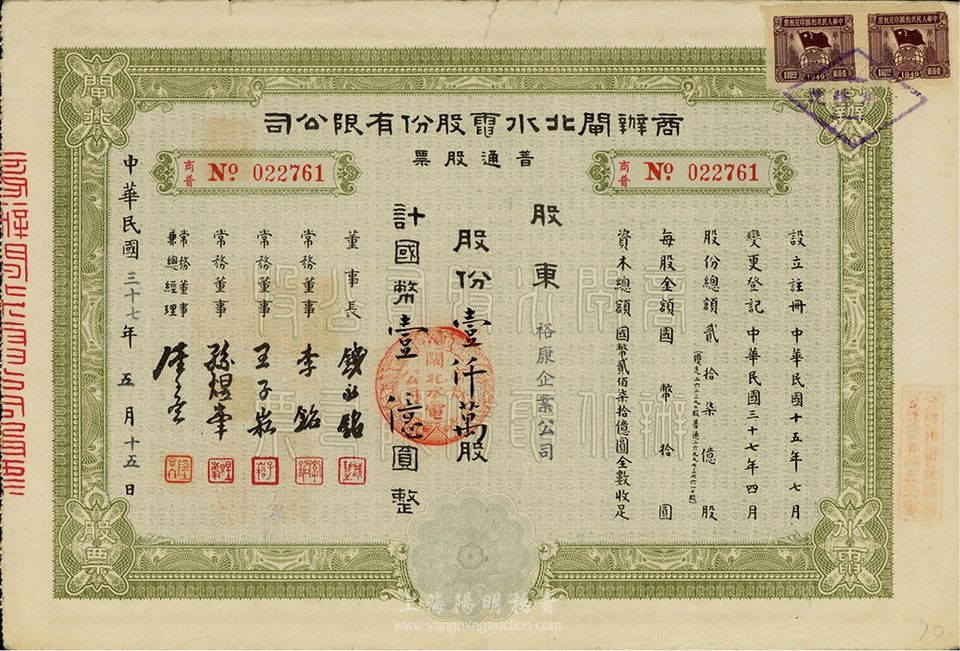 中華人民共和國印花稅票
1949
中華人民共和國印花稅票
1949
商辦閘北水電股份有限公司
普通股票
商普 № 022761
商普 № 022761
設立註冊 中華民國十五年七月
變更登記 中華民國三十七年四月
股份總額 貳拾柒億股
每股金額 國幣拾圓
資本總額 國幣貳佰柒拾億圓全數收足
股東 裕康企業公司
股份壹仟萬股
計國幣壹億圓整
董事長
常務董事 李銘
常務董事 王子崧
常務董事 孫煜峯
常務董事兼總經理
中華民國三十七年五月十五日
閘北
商辦
股票
水電
上海陽明拍賣
www.yangmingauction.com
70